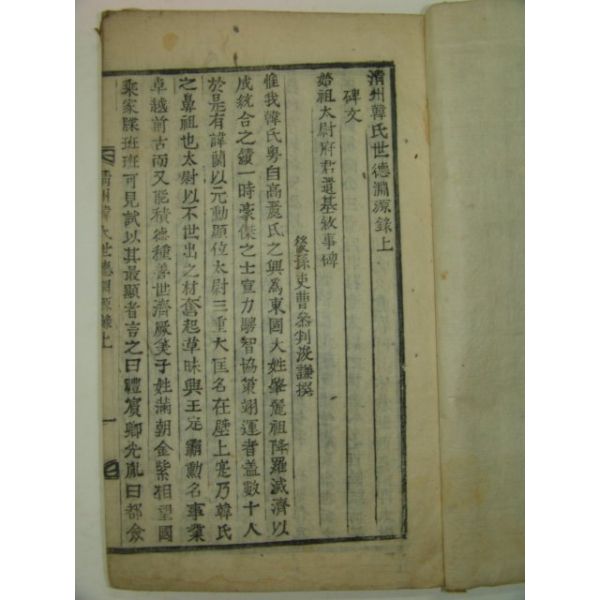 淸州韓氏世德淵源錄上
碑文
始祖太尉府君遺基敘事碑
後孫吏曹參判浚謙撰
惟我韓氏粤自高麗氏之興為東國大姓肇麗祖降羅滅濟以
成統合之績一時豪傑之士宣力騁智協策翊運者盖數十人
於是有諱蘭以元勳顯位太尉三重大匡名在壁上寔乃韓氏
之鼻祖也太尉以不世出之材奮起草昧興王定霸勳名事業
卓越前古而又能積德種善世濟厥美子姓滿朝金紫相望國
乘家牒班班可見試以其最顯者言之曰禮賓卿光胤曰都僉
淸州韓氏世德淵源錄上
一